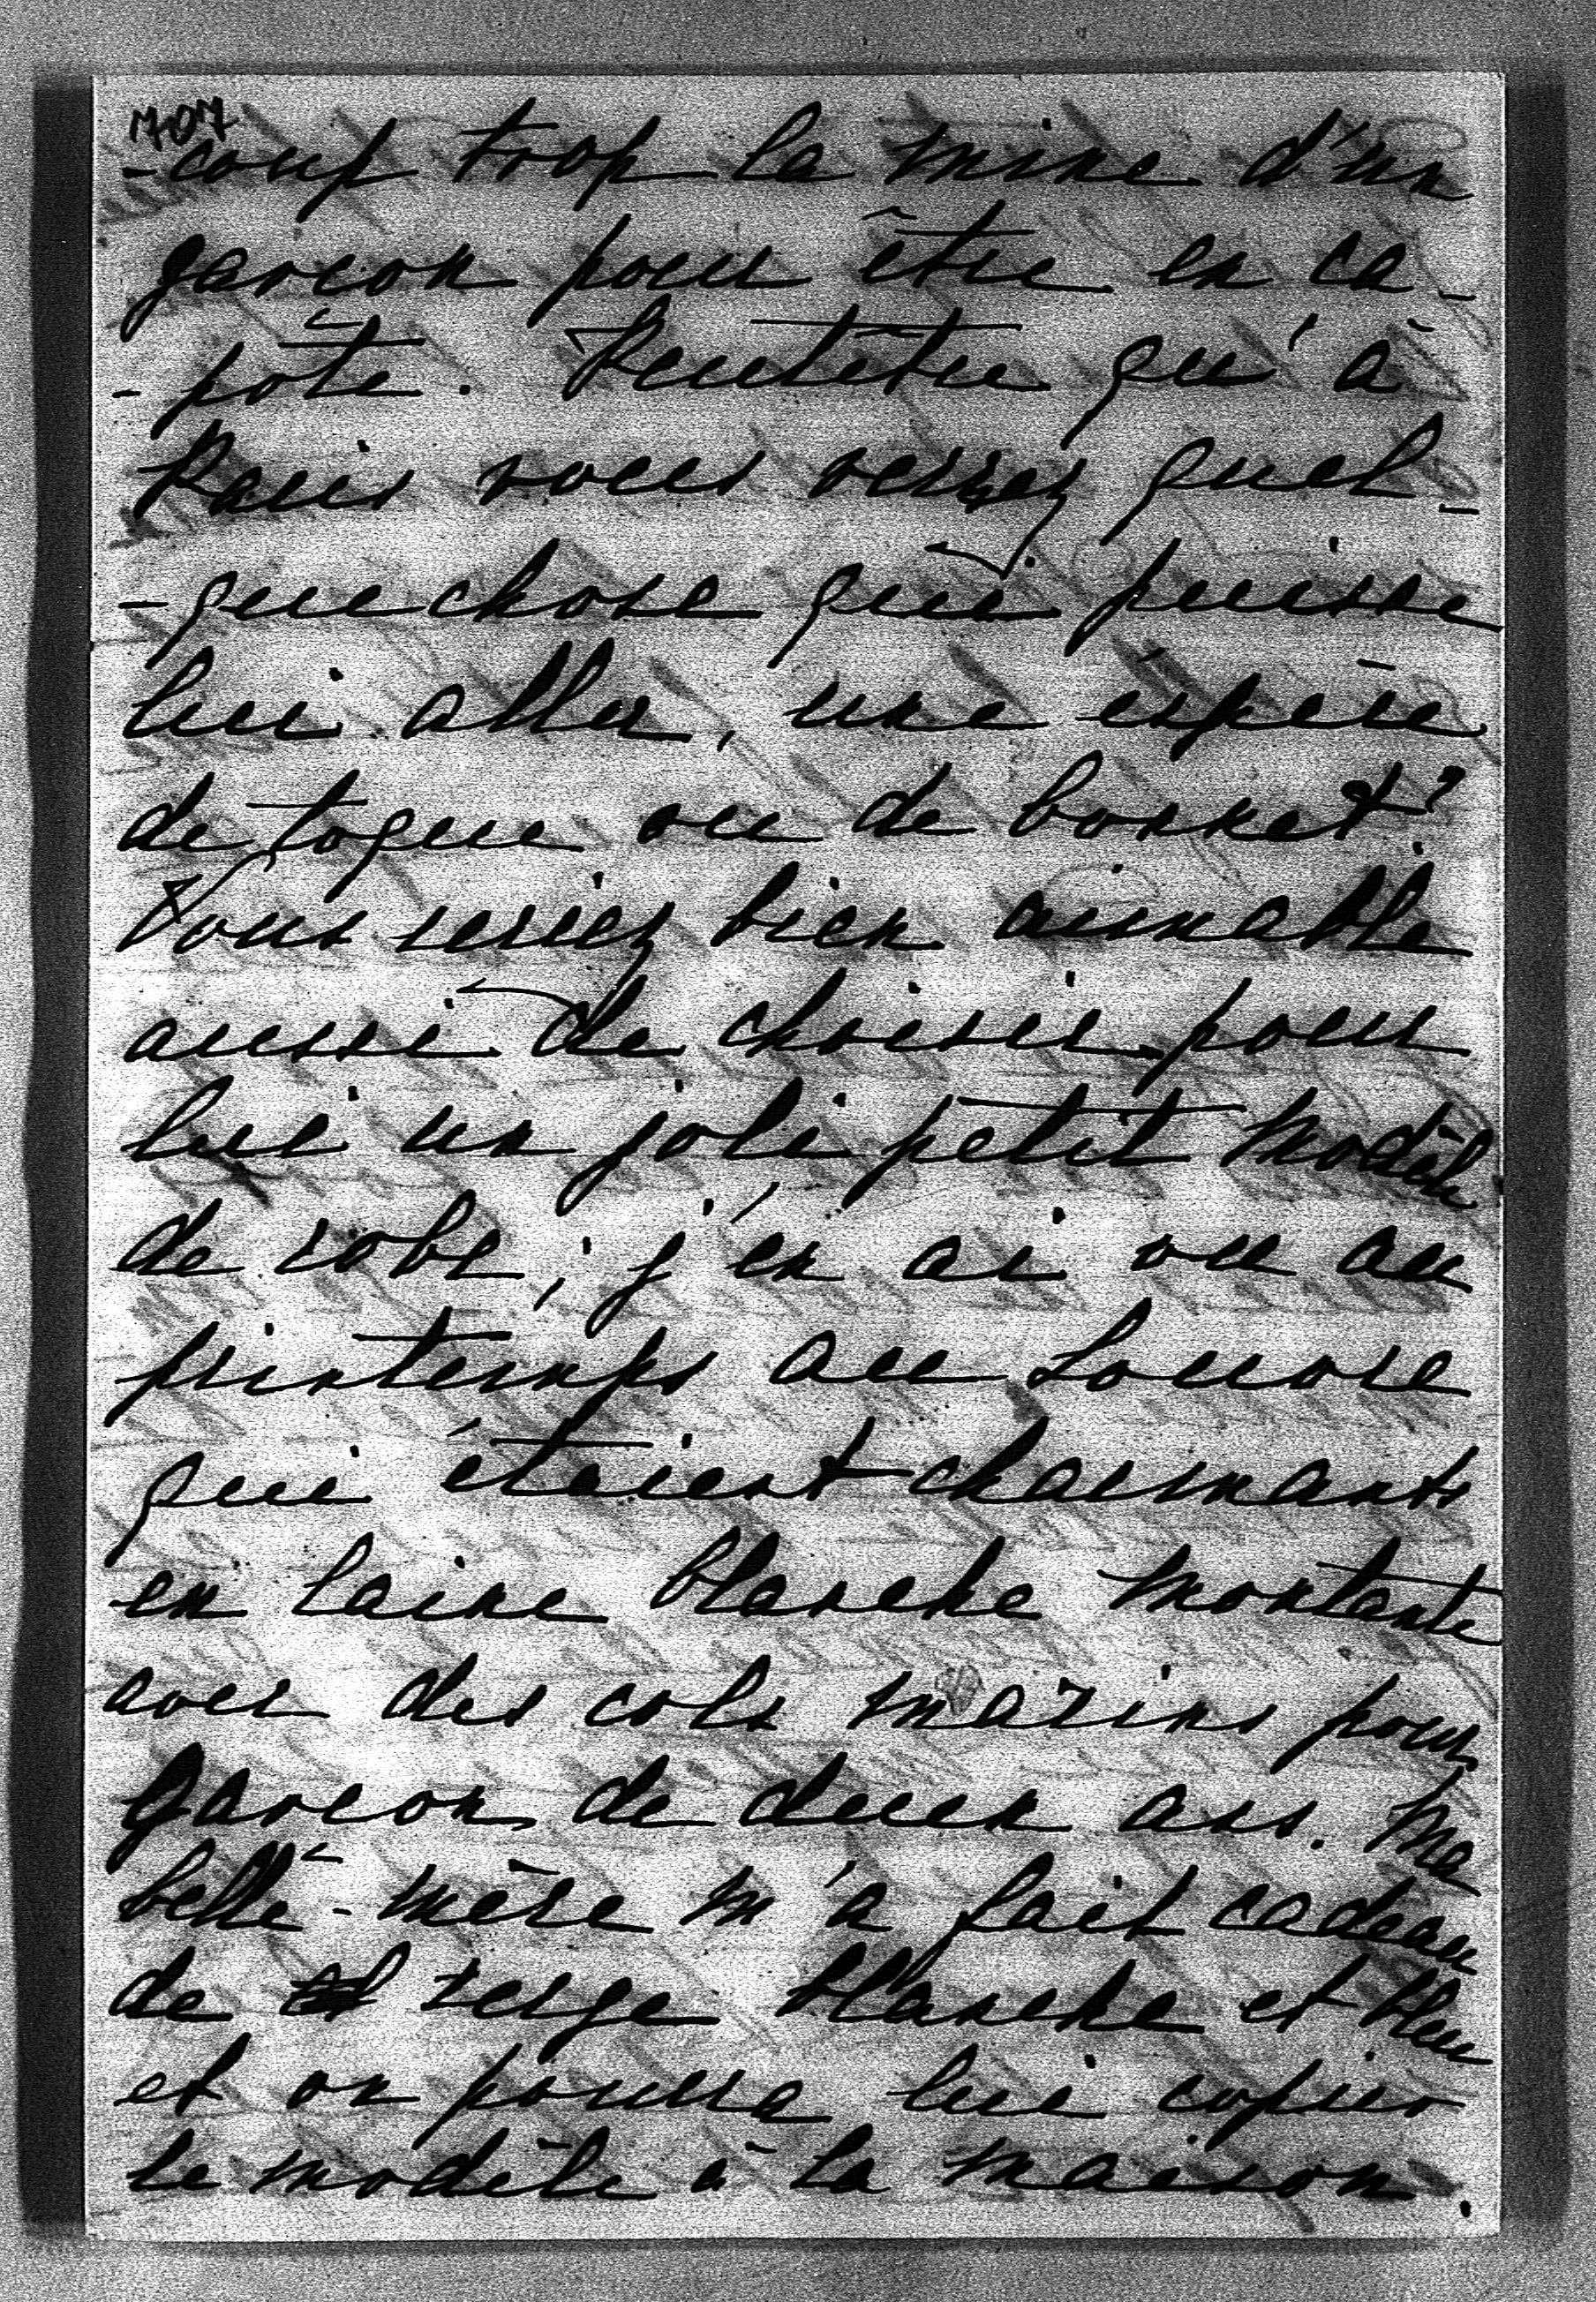 707
-coup trop la mine d'un
garcon pour être en ca-
-pote. Peutêtre qu'à
Paris vous verrez quel-
-que chose qui puisse
lui aller, une éspèce
de toque ou de bonnet?
Vous seriez bien aimable
aussi de choisir pour
lui un joli petit modèle
de robe, j'en ai vu au
printemps au Louvre
qui étaient charmants
en laine blanche montante
avec des cols marins pour
garcon de deux ans. Ma
belle-mère m'a fait cadeau
de serge blanche et bleu
et on pourra lui copier
le modèle à la maison.